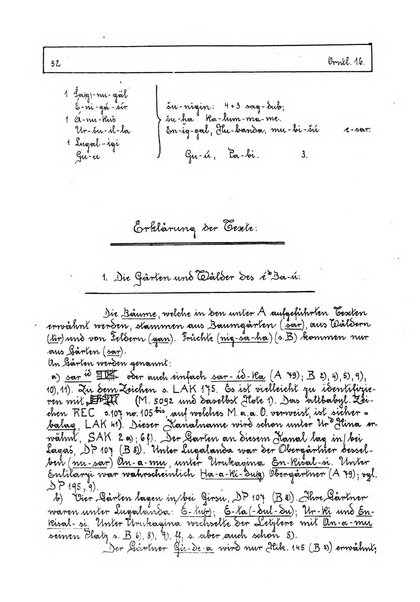 52 Orntl. 16.
1 Šag₅-nu-gál
E-ni-gá-sír šu-nigin: 4+3 sag-dub;
1 A-nu-kuš šu-ḫa Ka-lum-ma-me.
Ur-šu-il-la En-ig-gal, Nu-banda, mu-bi-šú e-sar.
1 Lugal-igi
Gu-u Gu-ú, Ta-bi. 3.
Erklärung der Texte:
1. Die Gärten und Wälder des é ᵈBa-ú:
Die Bäume, welche in den unter A aufgeführten Texten
erwähnt werden, stammen aus Baumgärten (sar), aus Wäldern
(tir) und von Feldern (gan). Früchte (nig-sa-ḫa) (s. B) kommen nur
aus Gärten (sar).
An Gärten werden genannt:
a) sar id oder auch einfach sar-id-ka (A 79; B 2), 4), 5), 9),
10), 11) Zu dem Zeichen s. LAK 175. Es ist vielleicht zu identifizie-
ren mit (M. 5092 und daselbst Note 1). Das altbabyl. Zei-
chen REC s. 107 no. 105 bis, auf welches M. a. a. O. verweist, ist sicher =
balag, LAK 41). Dieser Kanalname wird schon unter Ur-ᵈNina er-
wähnt, SAK 2 a); 6f). Der Garten an diesem Kanal lag in/bei
Lagaš, DP 107 (B 2)). Unter Lugalanda war der Obergärtner dessel-
ben (nu-sar) An-a-mu, unter Urukagina En-kisal-si. Unter
Entilarzi war wahrscheinlich Ha-a-ki-dug Obergärtner (A 79; vgl.
DP 195, 9).
b) Vier Gärten lagen in/bei Girsu, DP 107 (B 2)) Ihre Gärtner
waren unter Lugalanda: E-kur; E-ta(-dul-du); Ur-ki und En-
kisal-si. Unter Urukagina wechselte der Letztere mit An-a-mu
seinen Platz s. B 6), 8), 9), ff, s. aber auch schon 5).
Der Gärtner Gú-de-a wird nur Nik. 145 (B 2)) erwähnt;